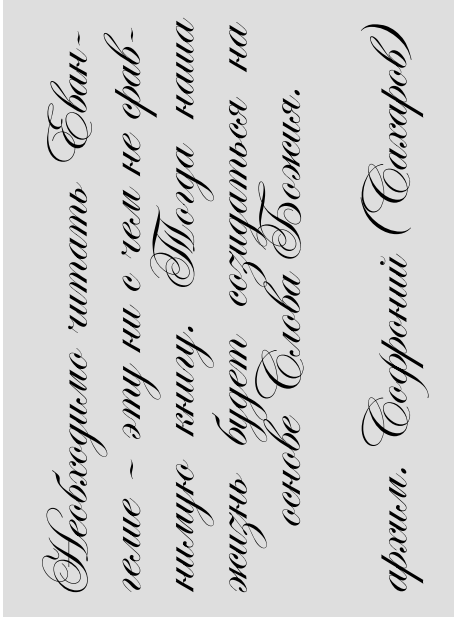 Необходимо читать Еван-
гелие – эту ни с чем не срав-
нимую книгу. Тогда наша
жизнь будет созидаться на
основе Слова Божия.
архим. Софроний (Сахаров)